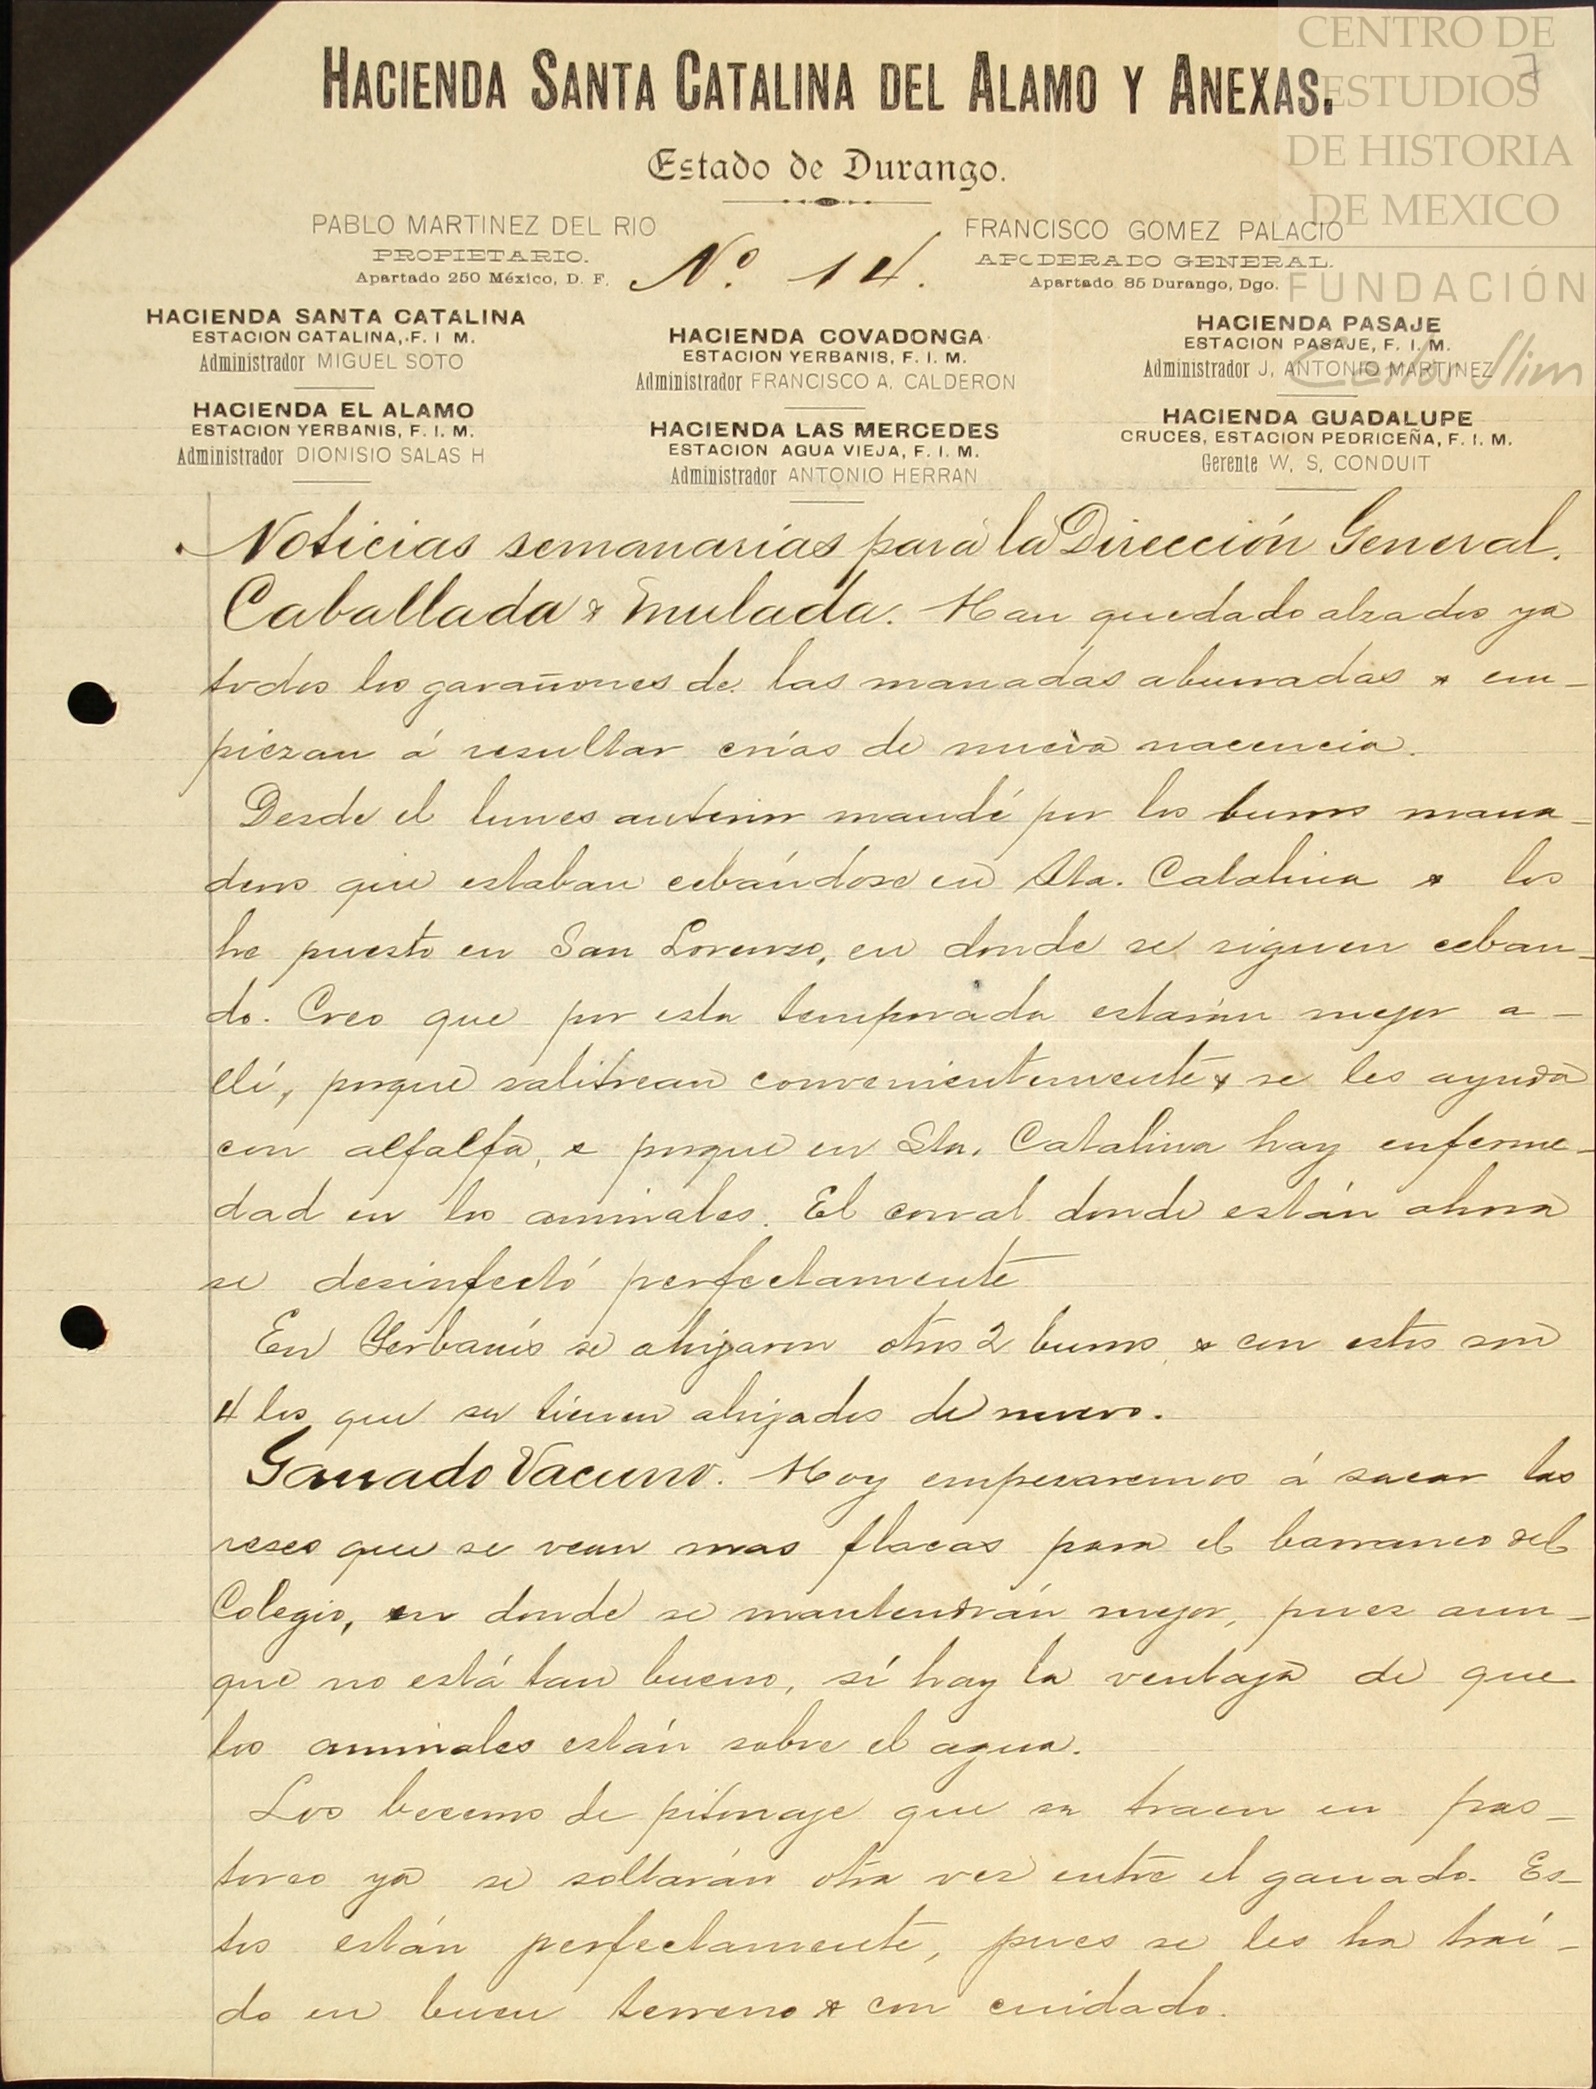 HACIENDA SANTA CATALINA DEL ALAMO Y ANEXAS.
Estado de Durango.
PABLO MARTINEZ DEL RIO
PROPIETARIO.
Apartado 250 México, D. F.
Nº. 14.
FRANCISCO GOMEZ PALACIO
APODERADO GENERAL.
Apartado 85 Durango, Dgo.
HACIENDA SANTA CATALINA
ESTACION CATALINA, F. I M.
Administrador MIGUEL SOTO
HACIENDA EL ALAMO
ESTACION YERBANIS, F. I. M.
Administrador DIONISIO SALAS H
HACIENDA COVADONGA
ESTACION YERBANIS, F. I. M.
Administrador FRANCISCO A. CALDERON
HACIENDA LAS MERCEDES
ESTACION AGUA VIEJA, F. I. M.
Administrador ANTONIO HERRAN
HACIENDA PASAJE
ESTACION PASAJE, F. I. M.
Administrador J. ANTONIO MARTINEZ
HACIENDA GUADALUPE
CRUCES, ESTACION PEDRICEÑA, F. I. M.
Gerente W. S. CONDUIT
Noticias semanarias para la Dirección General.
Caballada & mulada. Han quedado alzados ya
todos los garañones de las manadas aburradas & em-
piezan á resultar crías de nueva nacencia.
Desde el lunes anterior mandé por los burros mana-
deros que estaban cebándose en Sta. Catalina & los
he puesto en San Lorenzo, en donde se siguen ceban-
do. Creo que por esta temporada estarán mejor a-
llí, porque salitrean convenientemente & se les ayuda
con alfalfa, & porque en Sta. Catalina hay enferme-
dad en los animales. El corral donde están ahora
se desinfectó perfectamente
En Yerbanís se ahijaron otros 2 burros & con estos son
4 los que se tienen ahijados de nuevo.
Ganado Vacuno. Hoy empezaremos á sacar las
reses que se vean mas flacas para el barranco del
Colegio, en donde se mantendrán mejor, pues aun-
que no está tan bueno, sí hay la ventaja de que
los animales están sobre el agua.
Los becerros de pitonaje que se traen en pas-
toreo ya se soltarán otra vez entre el ganado. Es-
tos están perfectamente, pues se les ha traí-
do en buen terreno & con cuidado.
CENTRO DE
ESTUDIOS
DE HISTORIA
DE MEXICO
FUNDACIÓN
Carlos Slim